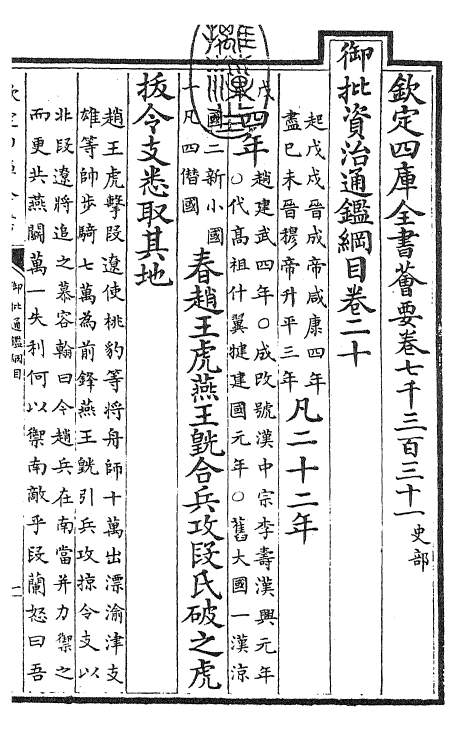 欽定四庫全書薈要卷七千三百三十一史部
御批資治通鑑綱目卷二十
起戊戌晉成帝咸康四年
盡己未晉穆帝升平三年
凡二十二年
戊
四年
趙建武四年○成改號漢中宗李壽漢興元年
○代高祖什翼揵建國元年○舊大國一漢涼
國二新小國
一凡四僭國
春趙王虎燕王皝合兵攻段氏破之虎
拔令支悉取其地
趙王虎擊段遼使桃豹等將舟師十萬出漂渝津支
雄等帥歩騎七萬為前鋒燕王皝引兵攻掠令支以
北段遼將追之慕容翰曰今趙兵在南當并力禦之
而更共燕鬭萬一失利何以禦南敵乎段蘭怒曰吾
御批通鑑綱目
一